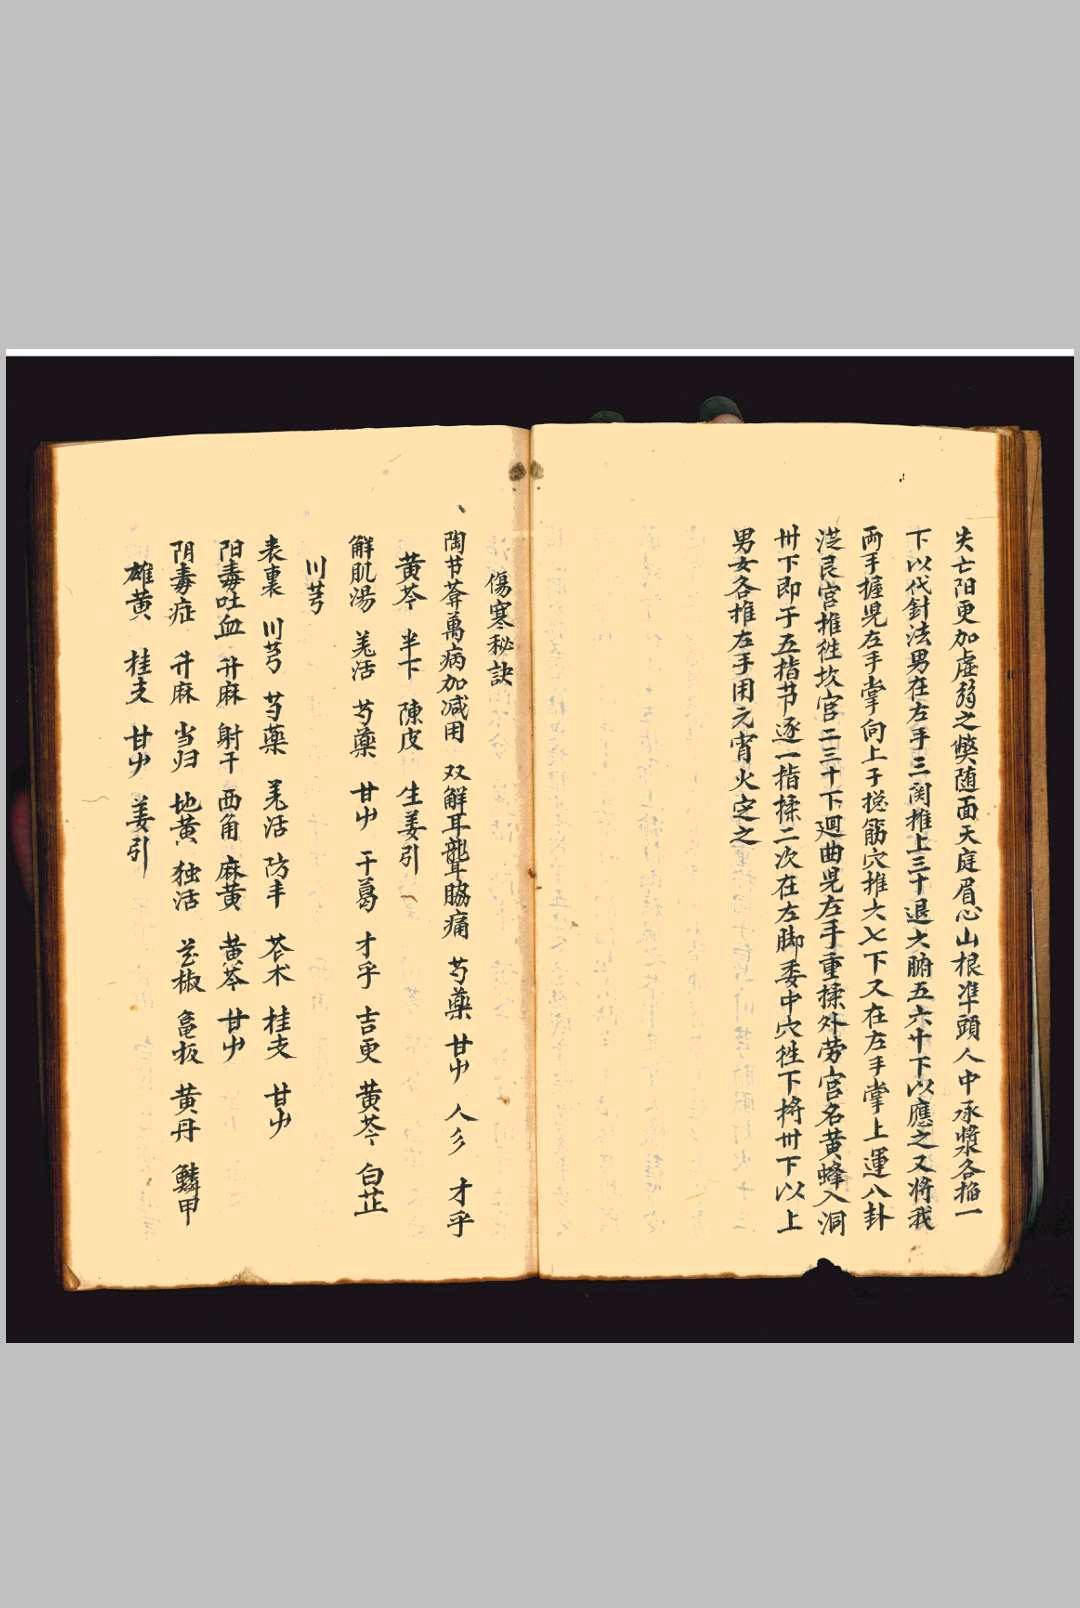 失亡阳更加虛弱之獘随面天庭眉心山根準頭人中承漿各掐一
下以代針法男在左手三関推上三十退六腑五六十下以應之又将我
両手握児左手掌向上于掖筋穴推六七下又在左手掌上運八卦
從艮宮推徃坎宮二三十下廻曲児左手重揉外劳宮名黄蜂入洞
卅下即于五指节逐一指揉二次在左脚委中穴徃下捋卅下以上
男女各推左手用元宵火定之
傷寒秘訣
陶节菴萬病加减用 双解耳聾脇痛 芍藥 甘屮 人彡 才乎
黄芩 半下 陳皮 生姜引
解肌湯 羌活 芍藥 甘屮 干葛 才乎 吉更 黄芩 白芷
川芎
表裏 川芎 芍藥 羌活 防丰 苍术 桂支 甘屮
阳毒吐血 升麻 射干 西角 麻黄 黄芩 甘屮
阴毒症 升麻 当归 地黄 独活 花椒 龟板 黄丹 鱗甲
雄黄 桂支 甘屮 姜引